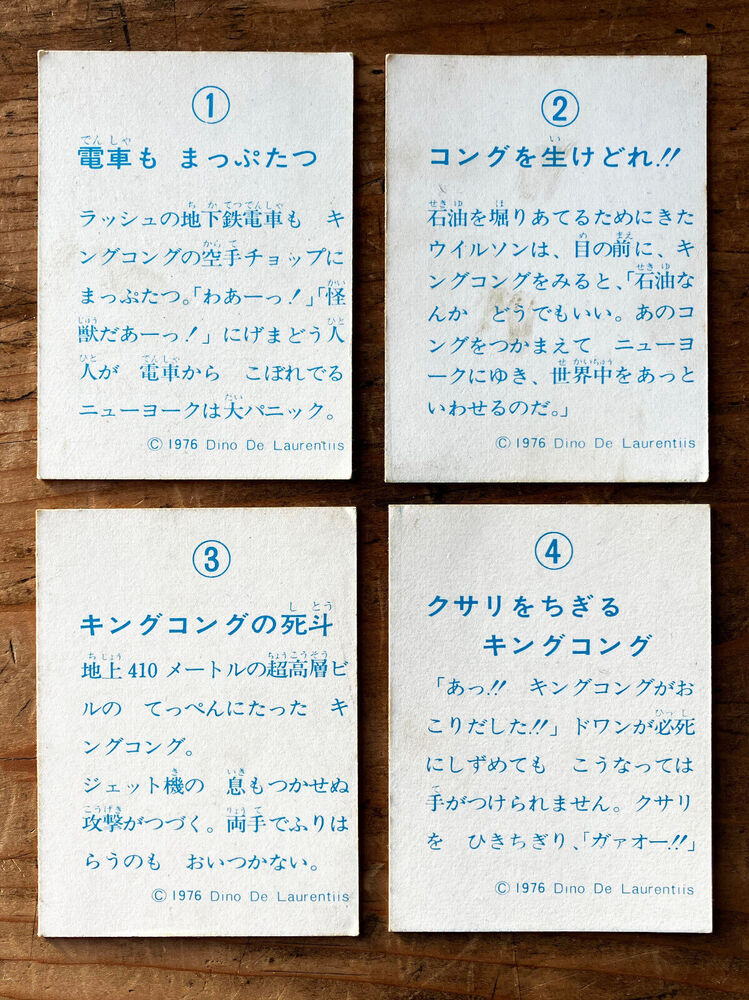 ①
電車も まっぷたつ
ラッシュの地下鉄電車も キ
ングコングの空手チョップに
まっぷたつ。「わあーっ!」「怪
獣だあーっ!」にげまどう人
人が 電車から こぼれでる
ニューヨークは大パニック。
© 1976 Dino De Laurentiis
②
コングを生けどれ!!
石油を堀りあてるためにきた
ウイルソンは、目の前に、キ
ングコングをみると、「石油な
んか どうでもいい。あのコ
ングをつかまえて ニューヨ
ークにゆき、世界中をあっと
いわせるのだ。」
© 1976 Dino De Laurentiis
③
キングコングの死斗
地上410メートルの超高層ビ
ルの てっぺんにたった キ
ングコング。
ジェット機の 息もつかせぬ
攻撃がつづく。両手でふりは
らうのも おいつかない。
© 1976 Dino De Laurentiis
④
クサリをちぎる
キングコング
「あっ!! キングコングがお
こりだした!!」ドワンが必死
にしずめても こうなっては
手がつけられません。クサリ
を ひきちぎり、「ガァオー!!」
© 1976 Dino De Laurentiis